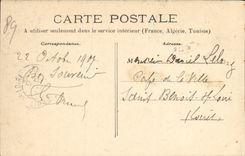 CARTE POSTALE
A utiliser seulement dans le service intérieur (France, Algérie, Tunisie)
Correspondance.
Adresse.
22 Octob 1907
Bon Souvenir
Monsieur Daniel
Café de la Ville
Saint Benoit s/ Loire
Loiret